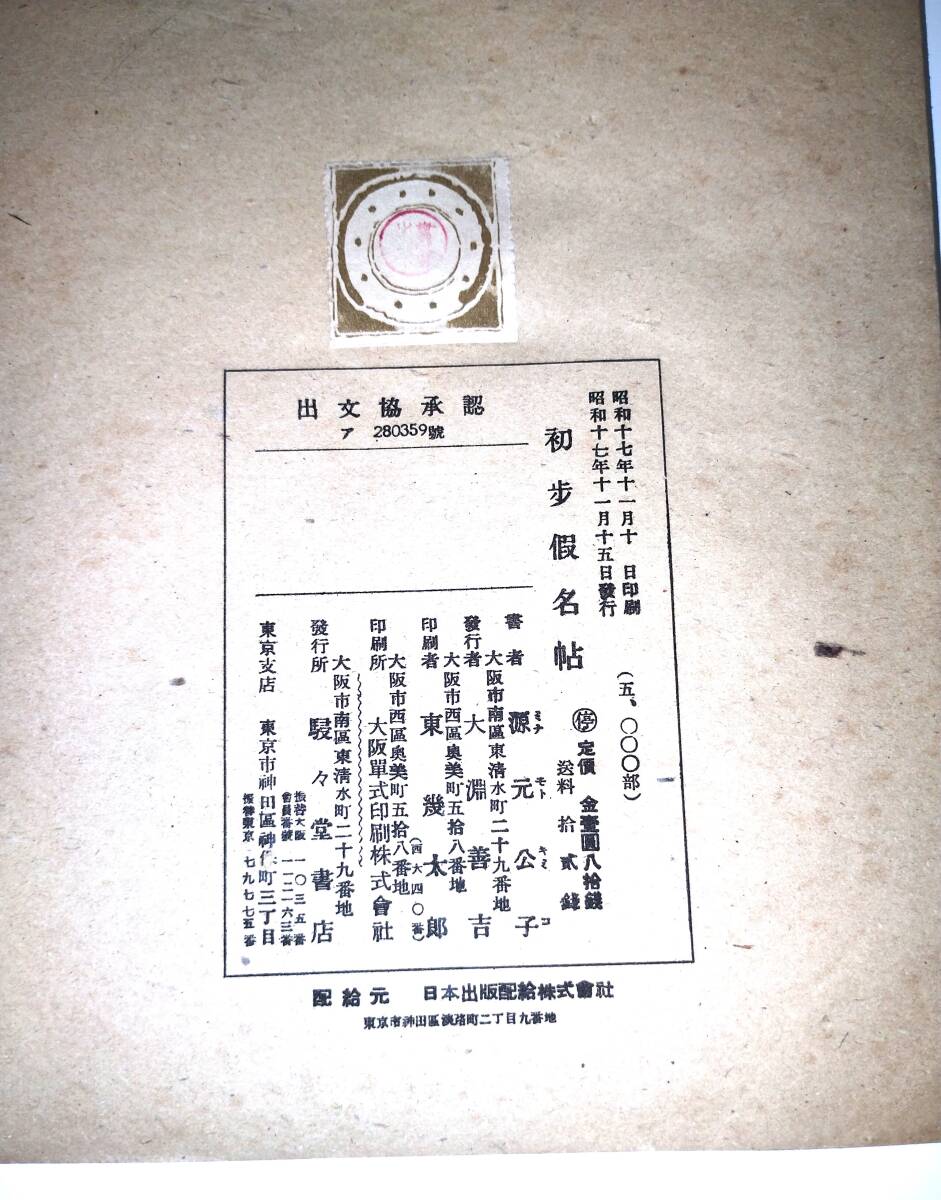 昭和十七年十一月十 日印刷
昭和十七年十一月十五日發行
(五、〇〇〇部)
初步假名帖
停 定價 金壹圓八拾錢
送料 拾貳錢
出文協承認
ア 280359號
書者 源元公子
ミナ モト キミ コ
大阪市南區東淸水町二十九番地
發行者 大淵善吉
大阪市西區奧美町五拾八番地
印刷者 東幾太郎
大阪市西區奧美町五拾八番地
印刷所 大阪單式印刷株式會社
(西大四〇番)
大阪市南區東淸水町二十九番地
發行所 駸々堂書店
振替大阪 一〇三五番
會員番號 一一二六三番
東京支店 東京市神田區神保町三丁目
振替東京 七九七七五番
配給元 日本出版配給株式會社
東京市神田區淡路町二丁目九番地